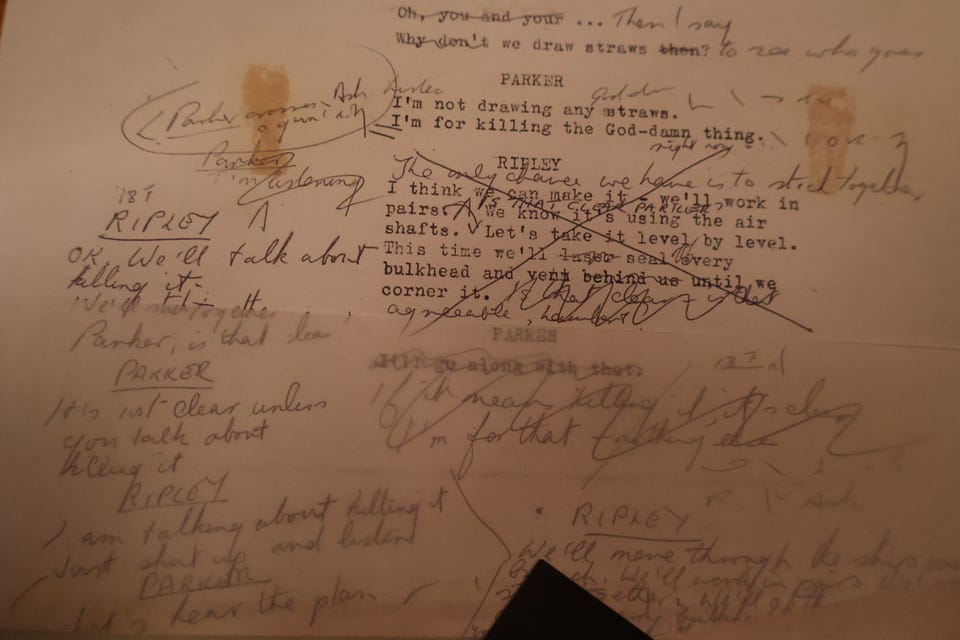 Oh, you and your ... Then I say
Why don't we draw straws then? to see who goes
PARKER
I'm not drawing any straws.
I'm for killing the God-damn thing.
right now
Parker crosses - Ash
Parker
I'm listening
RIPLEY
The only chance we have is to stick together
I think we can make it - we'll work in
pairs. IS THAT CLEAR PARKER We know it's using the air
shafts. Let's take it level by level.
This time we'll laser seal every
bulkhead and vent behind us until we
corner it. Is that clear is that
agreeable, Lambert
PARKER
I'll go along with that.
If it means killing it it's clear
I'm for that nothing else
RIPLEY
OK. We'll talk about
killing it -
We'll stick together
Parker, is that clear
PARKER
It is not clear unless
you talk about
killing it
RIPLEY
I am talking about killing it
Just shut up and listen
PARKER
Let's hear the plan
RIPLEY
We'll move through the ship
We'll work in pairs